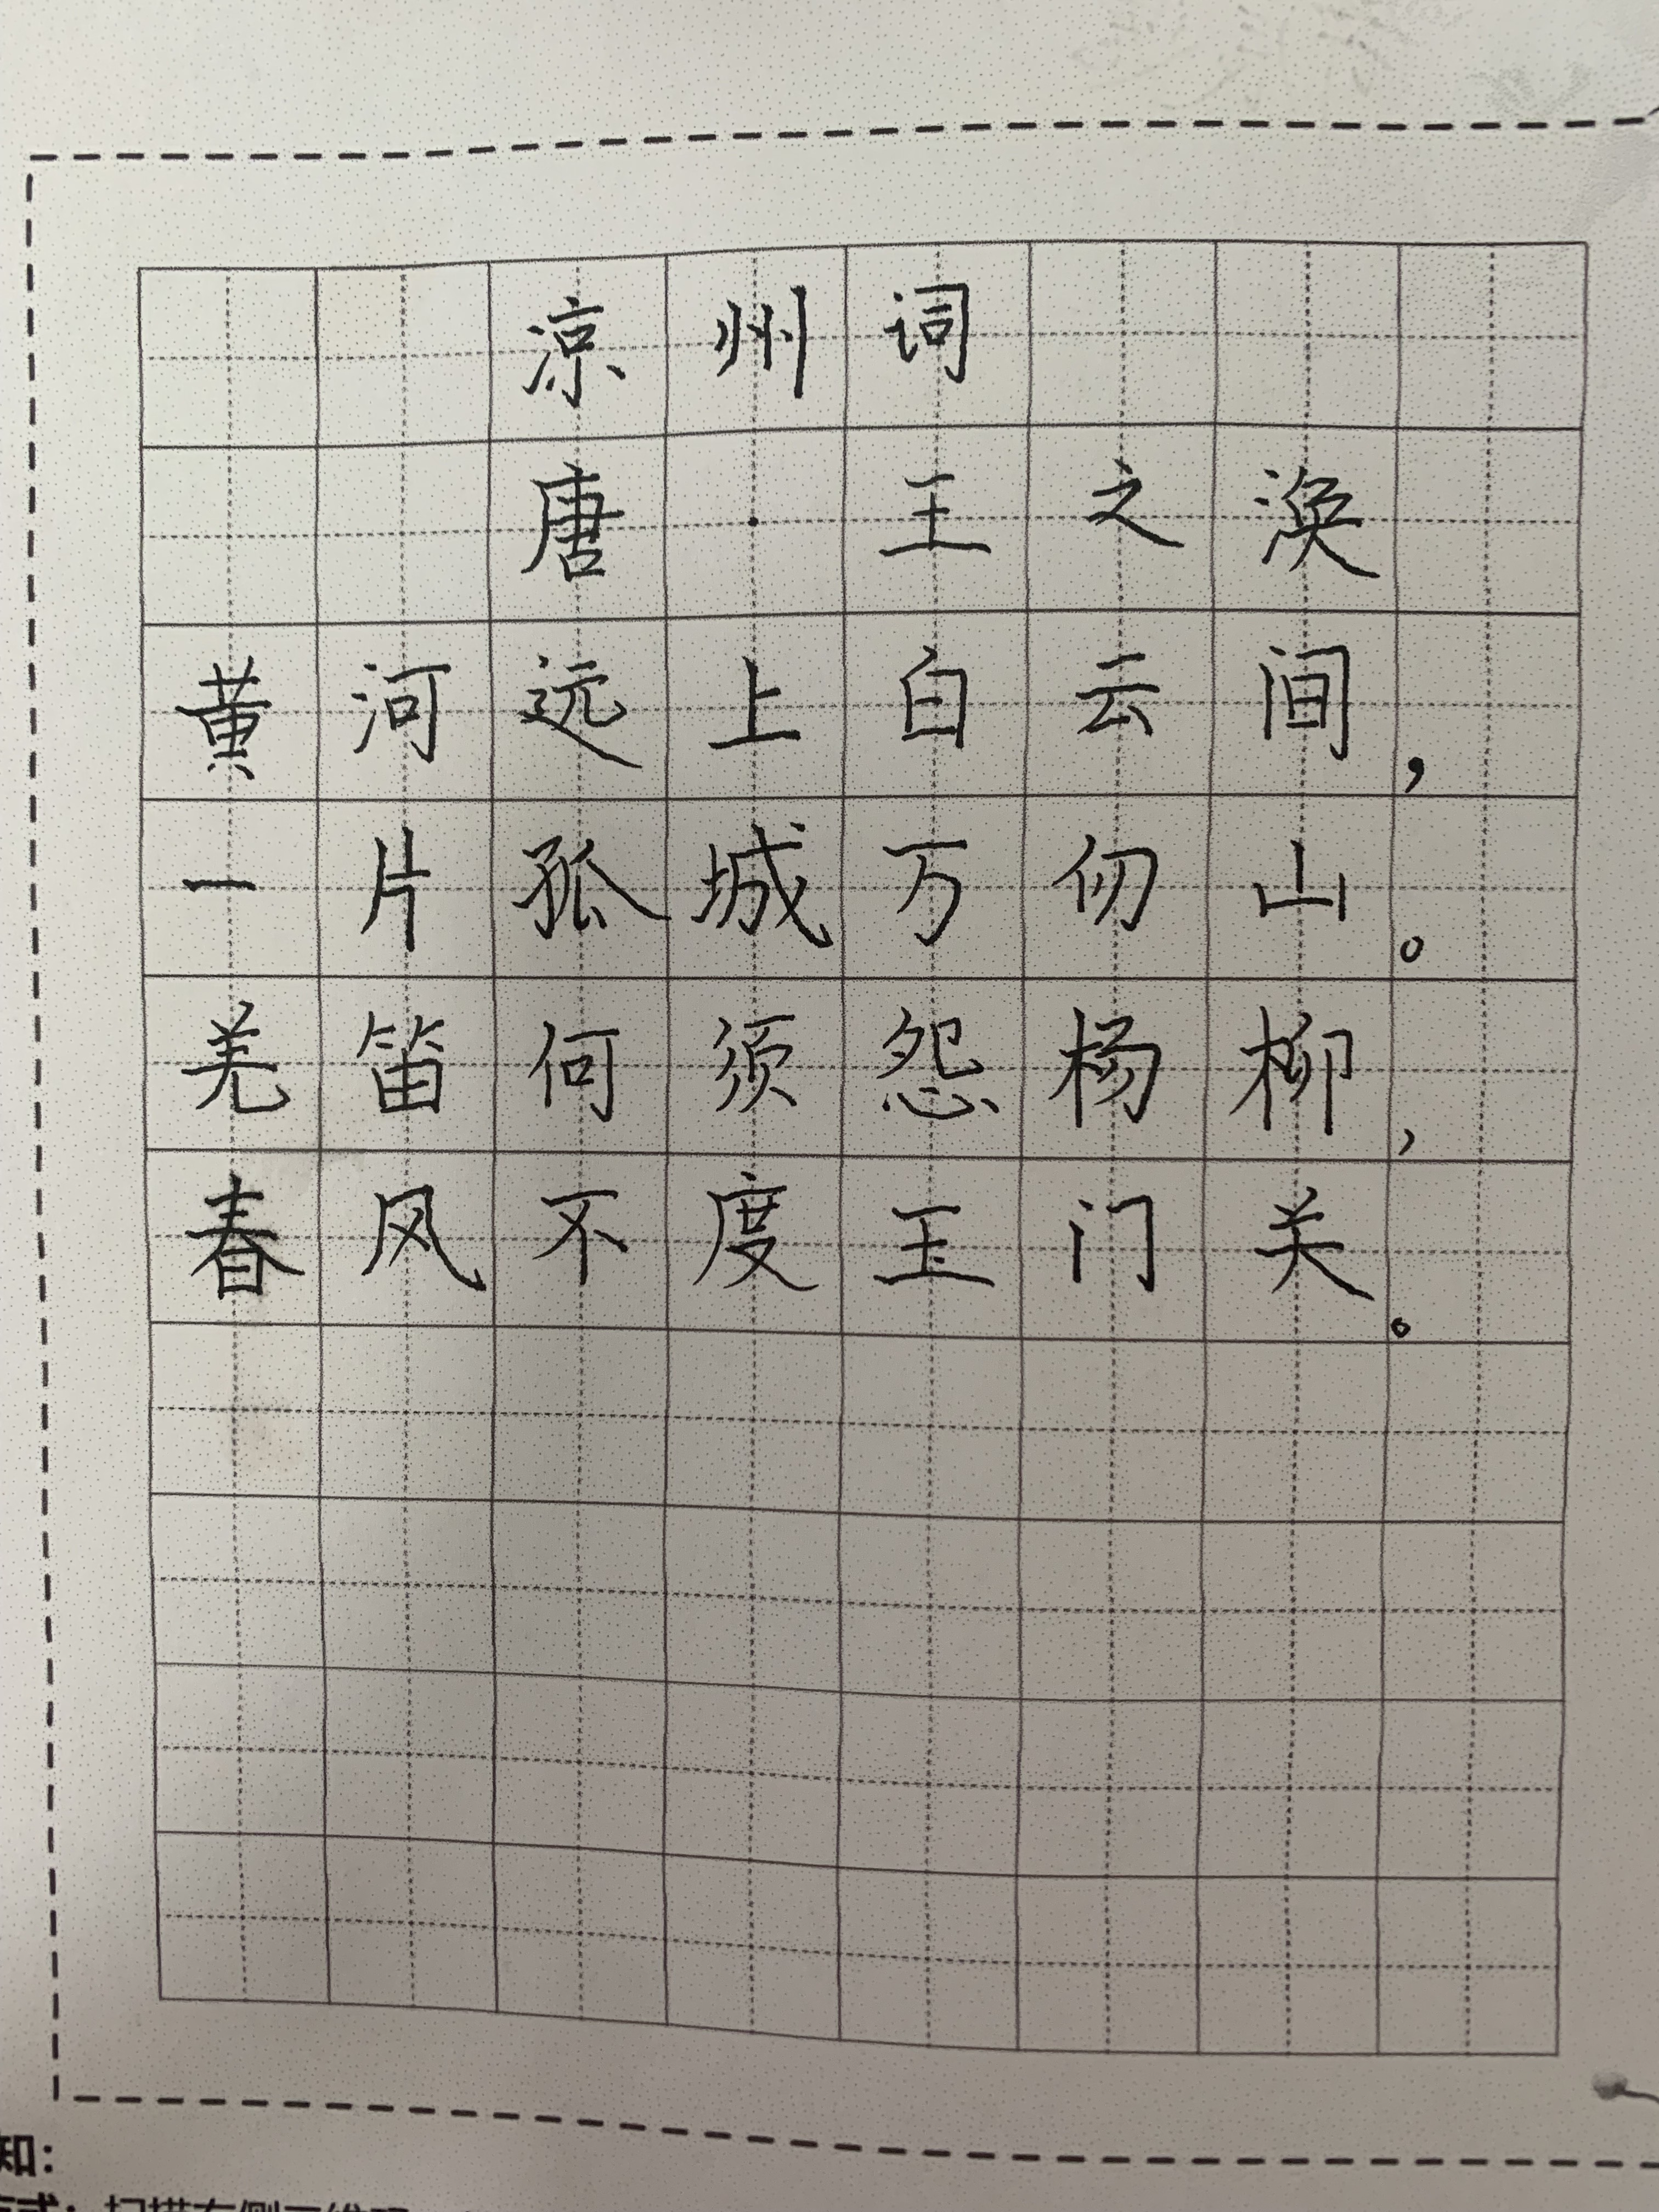 凉州词
唐·王之涣
黄河远上白云间，
一片孤城万仞山。
羌笛何须怨杨柳，
春风不度玉门关。
知：